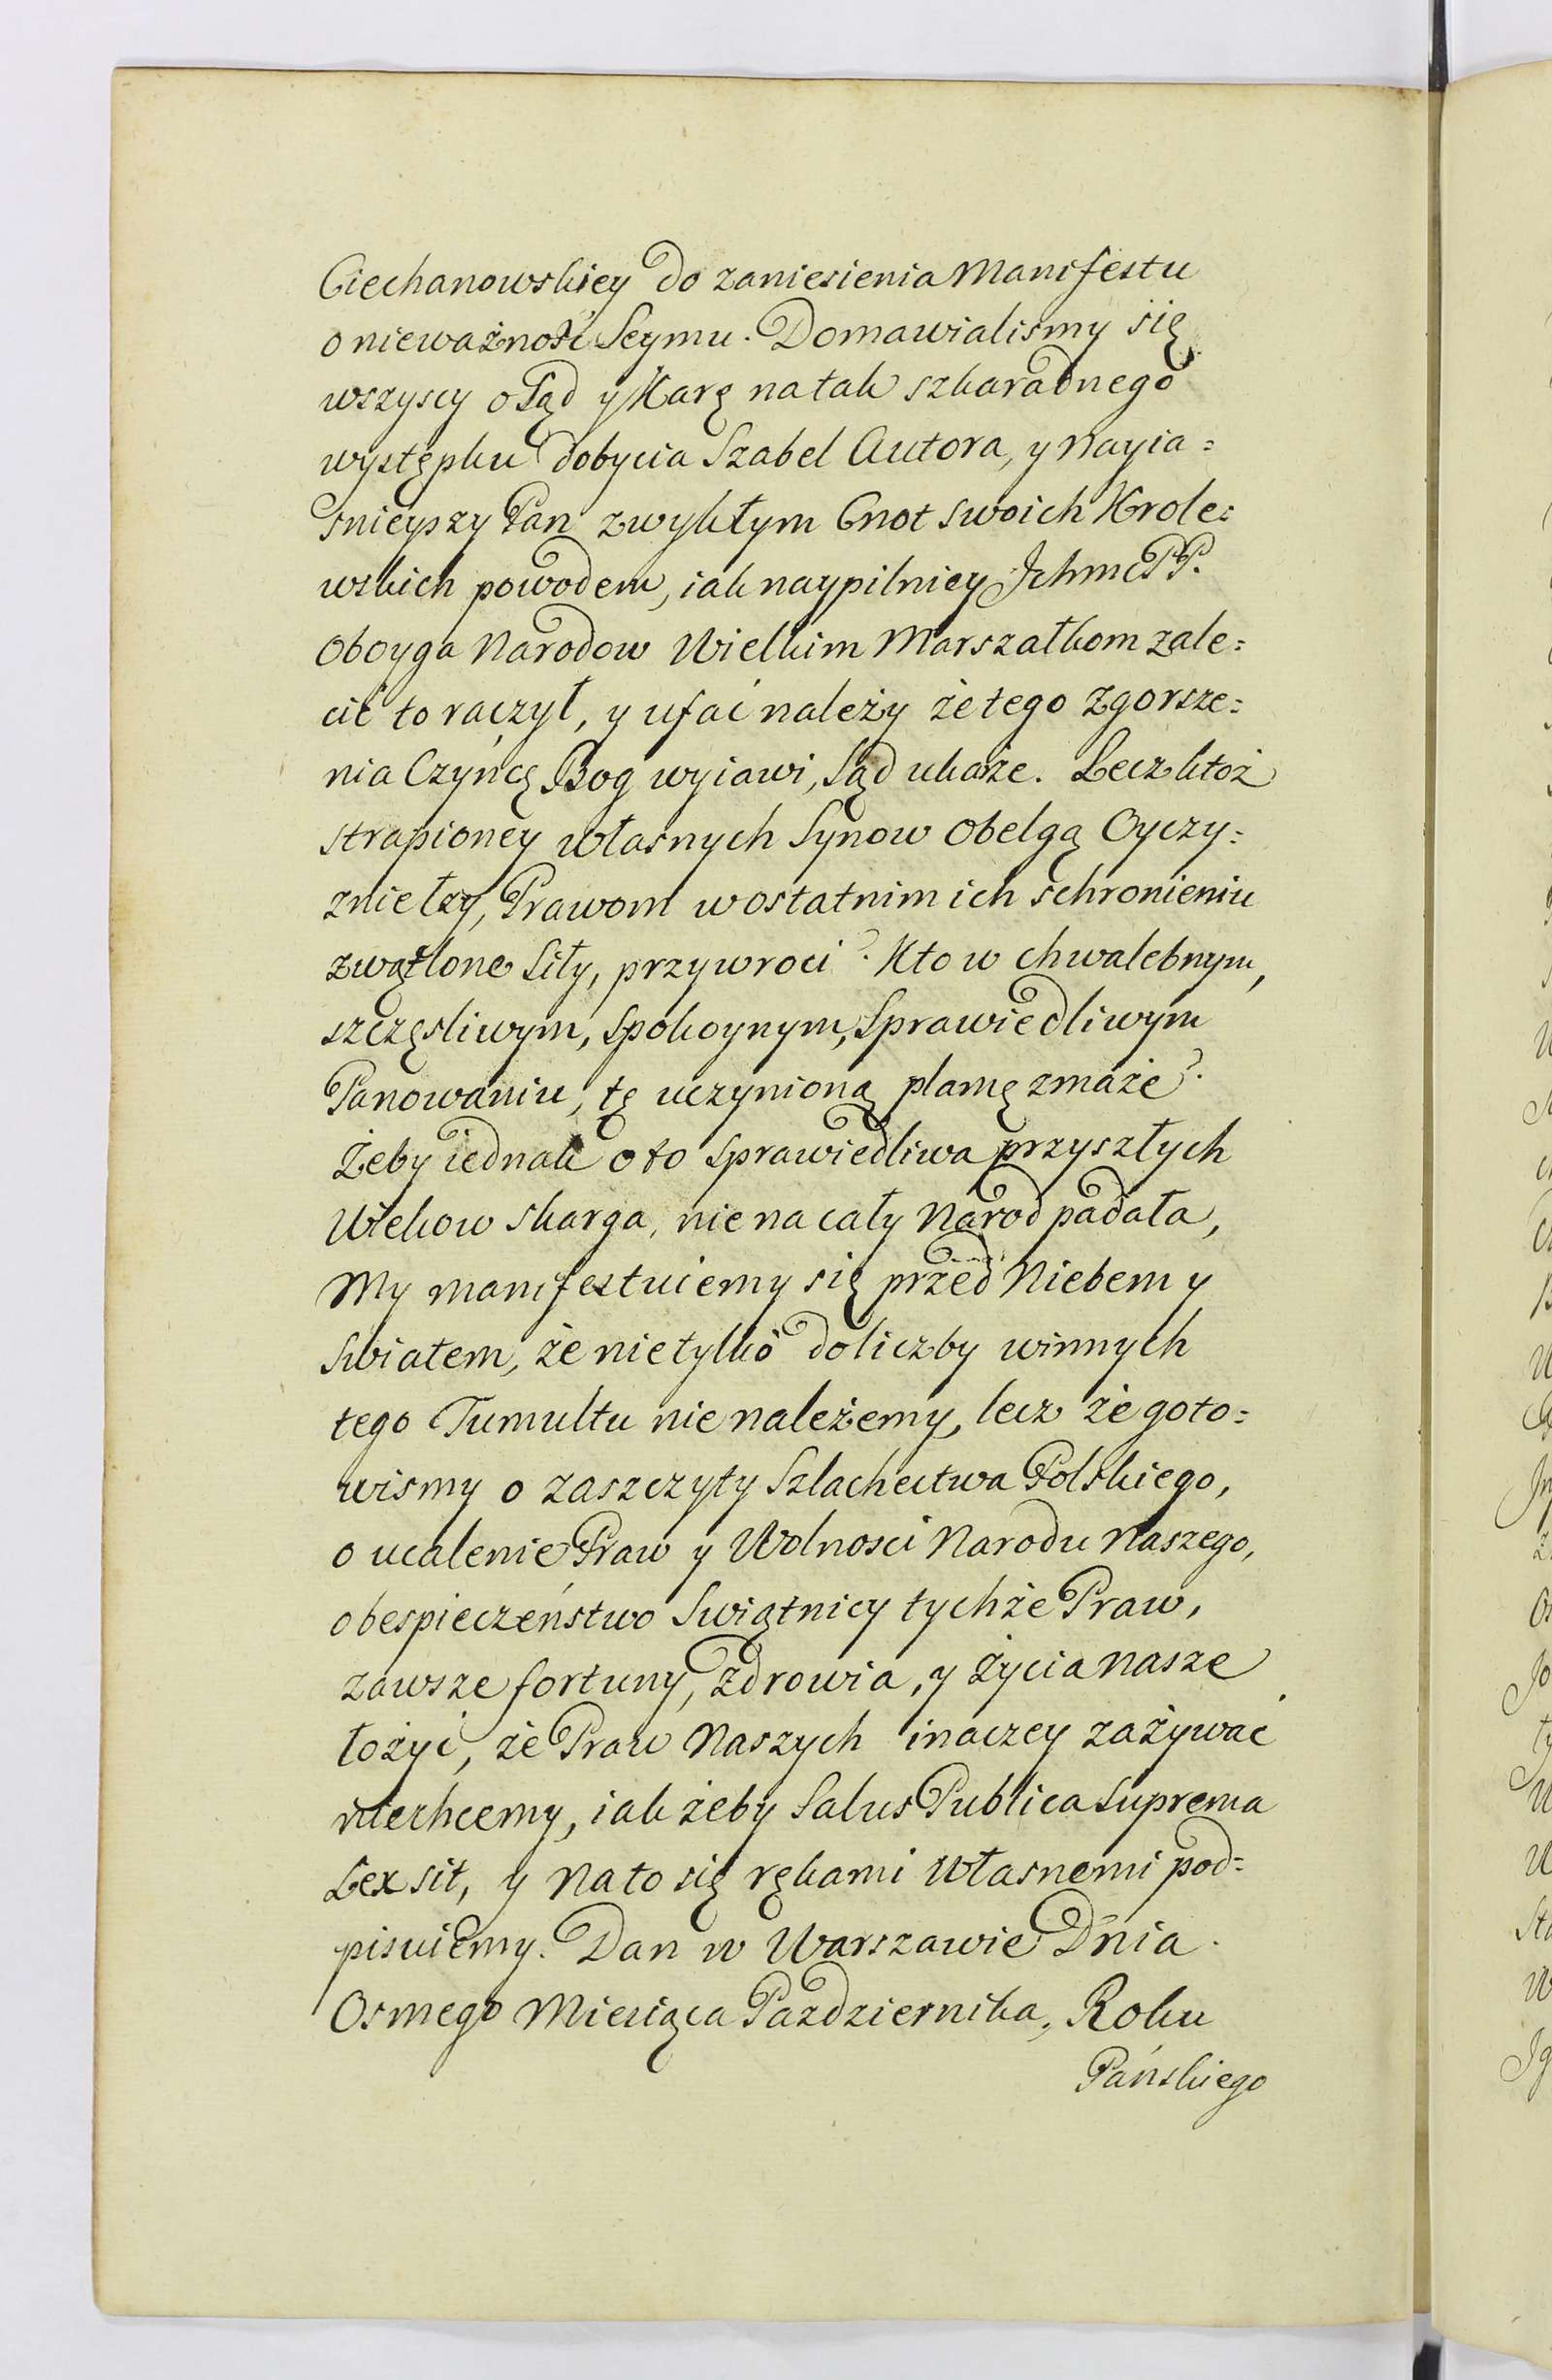 Ciechanowskiey do zaniesienia Manifestu
o nieważność Seymu. Domawialismy się
wszyscy o Sąd y Karę na tak szkaradnego
występku dobycia Szabel Autora, y Nayia=
snieyszy Pan zwykłym Cnot swoich Krole=
wskich powodem, iak naypilniey Jchmć PP.
Oboyga Narodow Wielkim Marszałkom zale=
cić to raczył, y ufać należy że tego zgorsze=
nia Czyńcę Bog wyiawi, Sąd ukaże. Lecz ktoż
strapioney własnych Synow Obelgą Oyczy=
znie łzy, Prawom w ostatnim ich schronieniu
zwątlone Siły, przywroci? Kto w chwalebnym,
szczęsliwym, Spokoynym, Sprawiedliwym
Panowaniu, tę uczynioną plamę zmaże?
Żeby iednak o to sprawiedliwa przyszłych
Wiekow skarga, nie na cały Narod padała,
My manifestuiemy się przed Niebem y
Swiatem, że nie tylko do liczby winnych
tego Tumultu nie należemy, lecz że goto=
wismy o zaszczyty Szlachectwa Polskiego,
o ucalenie Praw y Wolnosci Narodu Naszego,
o bespieczeństwo Swiątnicy tychże Praw,
zawsze fortuny, zdrowia, y życia nasze
łożyć, że Praw Naszych inaczey zażywać
niechcemy, iak żeby Salus Publica Suprema
Lex sit, y Na to się rękami Własnemi pod=
pisuiemy. Dan w Warszawie Dnia
Osmego Miesiąca Pazdziernika, Roku
Pańskiego